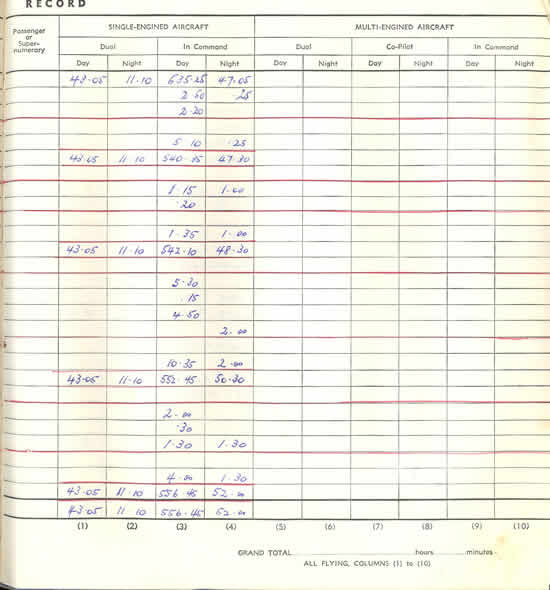 RECORD
Passenger or Super-numerary SINGLE-ENGINED AIRCRAFT MULTI-ENGINED AIRCRAFT
Dual In Command Dual Co-Pilot In Command
Day Night Day Night Day Night Day Night Day Night
48.05 11.10 635.25 47.05
2.50 .25
2.20
5 10 .25
43.05 11 10 540.35 47.30
1.15 1.00
.20
1.35 1.00
43.05 11.10 542.10 48.30
5.30
.15
4.50
2.00
10.35 2.00
43.05 11.10 552.45 50.30
2.00
.30
1.30 1.30
4.00 1.30
43.05 11.10 556.45 52.00
43.05 11 10 556.45 52.00
(1) (2) (3) (4) (5) (6) (7) (8) (9) (10)
GRAND TOTAL hours minutes
ALL FLYING, COLUMNS (1) to (10)